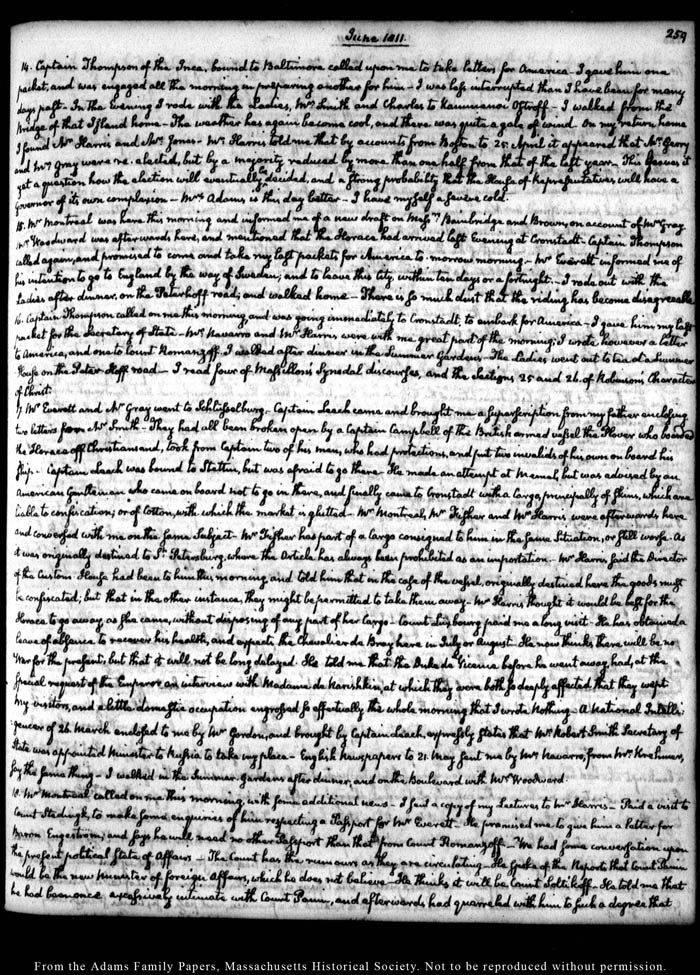 June 1811.
259
14. Captain Thompson of the Inca, bound to Baltimore called upon me to take letters for America - I gave him one
packet, and was engaged all the morning in preparing another for him - I was less interrupted than I have been for many
days past - In the Evening I rode with the Ladies, Mr. Smith and Charles to Kaminnoi Ostroff - I walked from the
bridge of that Island home - The weather has again become cool, and there was quite a gale of wind. On my return home
I found Mr. Harris and Mr. Jones - Mr. Harris told me that by accounts from Boston to 25. April it appeared that Mr. Gerry
and Mr. Gray were re-elected, but by a majority reduced by more than one half from that of the last year - This leaves it
yet a question how the election will eventually be decided, and a strong probability that the House of Representatives will have a
Governor of its own complexion - Mrs. Adams is this day better - I have myself a severe cold.
15. Mr. Montreal was here this morning and informed me of a new draft on Mess.rs Bainbridge and Brown, on account of Mr. Gray
Mr. Woodward was afterwards here, and mentioned that the Horace had arrived last Evening at Cronstadt - Captain Thompson
called again, and promised to come and take my last packets for America to-morrow morning - Mr. Everett informed me of
his intention to go to England by the way of Sweden; and to leave this City within ten days or a fortnight. - I rode out with the
Ladies after dinner, on the Peterhoff road, and walked home - There is so much dust that the riding has become disagreeable
16. Captain Thompson called on me this morning, and was going immediately to Cronstadt, to embark for America - I gave him my last
packet for the Secretary of State - Mr. Navarro and Mr. Harris were with me great part of the morning; I wrote however a letter
to America, and one to Count Romanzoff. I walked after dinner in the Summer Gardens - The Ladies went out to tea at a Summer
House on the Peter-Hoff road - I read four of Massillon's Synodal discourses, and the Sections 25 and 26. of Robinsons Character
of Christ.
17. Mr. Everett and Mr. Gray went to Schlüsselburg. Captain Leach came and brought me a superscription from my father enclosing
two letters for Mr. Smith - They had all been broken open by a Captain Campbell of the British armed vessel the Plover who boarded
the Horace off Christiansand, took from Captain two of his men, who had protections, and put two invalids of his own on board his
Ship - Captain Leach was bound to Stettin, but was afraid to go there - He made an attempt at Memel, but was advised by an
American Gentleman who came on board not to go in there, and finally came to Cronstadt with a Cargo, principally of skins, which are
liable to confiscation; or of Cotton, with which the market is glutted - Mr. Montreal, Mr. Fisher and Mr. Harris were afterwards here
and conversed with me on the same subject - Mr. Fisher has part of a Cargo consigned to him in the same situation, or still worse. As
it was originally destined to St. Petersburg, where the Article has always been prohibited as an importation - Mr. Harris said the Director
of the Custom House had been to him this morning, and told him that in the case of the vessel, originally destined here the goods must
be confiscated; but that in the other instance, they might be permitted to take them away - Mr. Harris thought it would be best for the
Horace to go away, as she came, without disposing of any part of her cargo - Count Luxbourg paid me a long visit - He has obtained a
leave of absence to recover his health, and expects the Chevalier de Bray here in July or August - He now thinks there will be no
War for the present, but that it will not be long delayed. He told me that the Duke de Vicence before he went away, had, at the
special request of the Emperor an interview with Madame de Narishkin, at which they were both so deeply affected that they wept
My visitors, and a little domestic occupation engrossed so effectually the whole morning that I wrote Nothing - A National Intelli-
gencer of 26. March enclosed to me by Mr. Gordon, and brought by Captain Leach, expressly states that Mr. Robert Smith Secretary of
State was appointed Minister to Russia to take my place - English Newspapers to 21. May sent me by Mr. Navarro, from Mr. Krehmer,
say the same thing - I walked in the Summer Gardens after dinner, and on the Boulevard with Mr. Woodward.
18. Mr. Montreal called on me this morning, with some additional news - I sent a copy of my Lectures to Mr. Harris - Paid a visit to
Count Stedingk, to make some enquiries of him respecting a Passport for Mr. Everett. He promised me to give him a letter for
Baron Engeström; and says he will need no other Passport than that from Count Romanzoff - We had some conversation upon
the present political State of Affairs - The Count has the rumours as they are circulating - He spoke of the Report that Count Panin
would be the new Minister of foreign Affairs, which he does not believe - He thinks it will be Count Soltikoff - He told me that
he had been once excessively intimate with Count Panin, and afterwards had quarreled with him to such a degree that
From the Adams Family Papers, Massachusetts Historical Society. Not to be reproduced without permission.